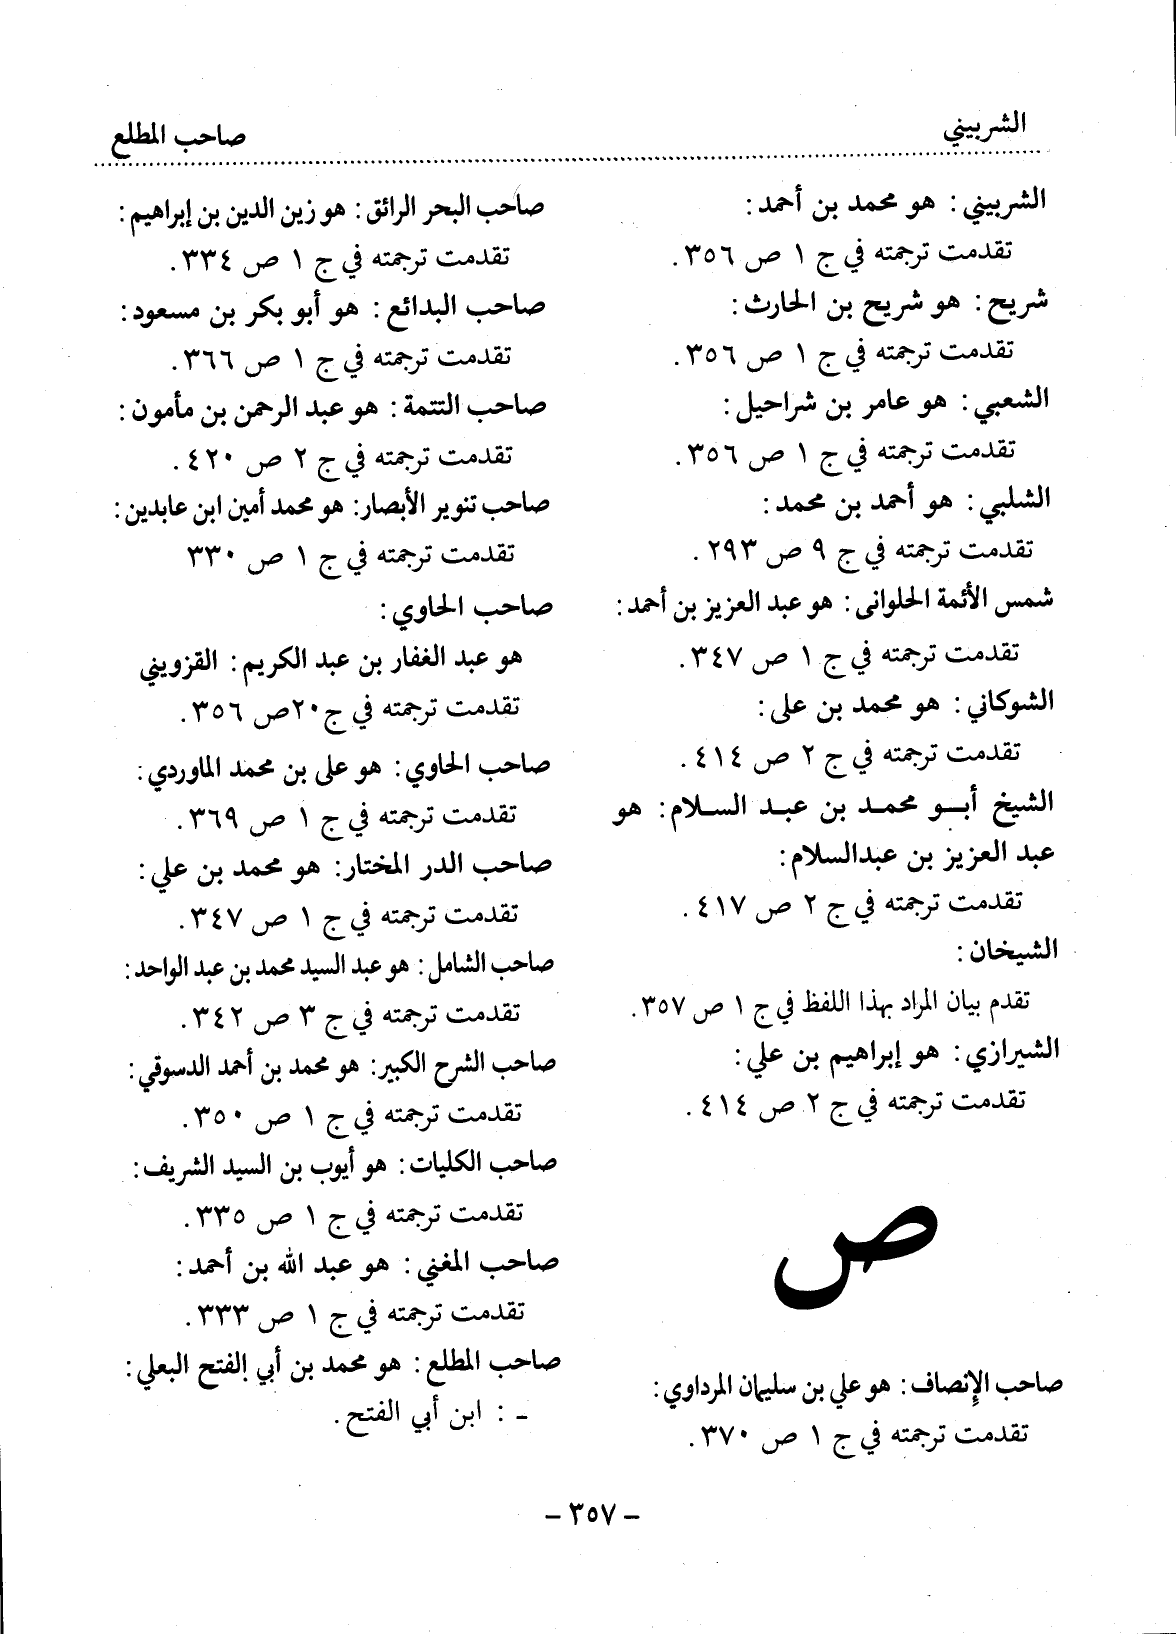 الشربيني
صاحب المطلع
الشربيني : هو محمد بن أحمد:
تقدمت ترجمته في ج ١ ص ٣٥٦.
شريح : هو شريح بن الحارث:
تقدمت ترجمته في ج ١ ص ٣٥٦.
الشعبي : هو عامر بن شراحيل:
تقدمت ترجمته في ج ١ ص ٣٥٦.
الشلبي : هو أحمد بن محمد:
تقدمت ترجمته في ج ٩ ص ٢٩٣.
شمس الأئمة الحلوانى: هو عبد العزيز بن أحمد:
تقدمت ترجمته في ج ١ ص ٣٤٧.
الشوكاني : هو محمد بن على:
تقدمت ترجمته في ج ٢ ص ٤١٤.
الشيخ أبو محمد بن عبد السلام: هو
عبد العزيز بن عبدالسلام:
تقدمت ترجمته في ج ٢ ص ٤١٧.
الشيخان:
تقدم بيان المراد بهذا اللفظ في ج ١ ص ٣٥٧.
الشيرازي: هو إبراهيم بن علي:
تقدمت ترجمته في ج ٢ ص ٤١٤.
ص
صاحب الإنصاف: هو علي بن سليمان المرداوي:
تقدمت ترجمته في ج ١ ص ٣٧٠.
صاحب البحر الرائق: هو زين الدين بن إبراهيم:
تقدمت ترجمته في ج ١ ص ٣٣٤.
صاحب البدائع : هو أبو بكر بن مسعود:
تقدمت ترجمته في ج ١ ص ٣٦٦.
صاحب التتمة: هو عبد الرحمن بن مأمون:
تقدمت ترجمته في ج ٢ ص ٤٢٠.
صاحب تنوير الأبصار: هو محمد أمين ابن عابدين:
تقدمت ترجمته في ج ١ ص ٣٣٠
صاحب الحاوي:
هو عبد الغفار بن عبد الكريم: القزويني
تقدمت ترجمته في ج٢٠ص ٣٥٦.
صاحب الحاوي: هو على بن محمد الماوردي:
تقدمت ترجمته في ج ١ ص ٣٦٩.
صاحب الدر المختار: هو محمد بن علي:
تقدمت ترجمته في ج ١ ص ٣٤٧.
صاحب الشامل: هو عبد السيد محمد بن عبد الواحد:
تقدمت ترجمته في ج ٣ ص ٣٤٢.
صاحب الشرح الكبير: هو محمد بن أحمد الدسوقي:
تقدمت ترجمته في ج ١ ص ٣٥٠.
صاحب الكليات: هو أيوب بن السيد الشريف:
تقدمت ترجمته في ج ١ ص ٣٣٥.
صاحب المغني: هو عبد الله بن أحمد:
تقدمت ترجمته في ج ١ ص ٣٣٣.
صاحب المطلع: هو محمد بن أبي الفتح البعلي:
- : ابن أبي الفتح.
- ٣٥٧ -